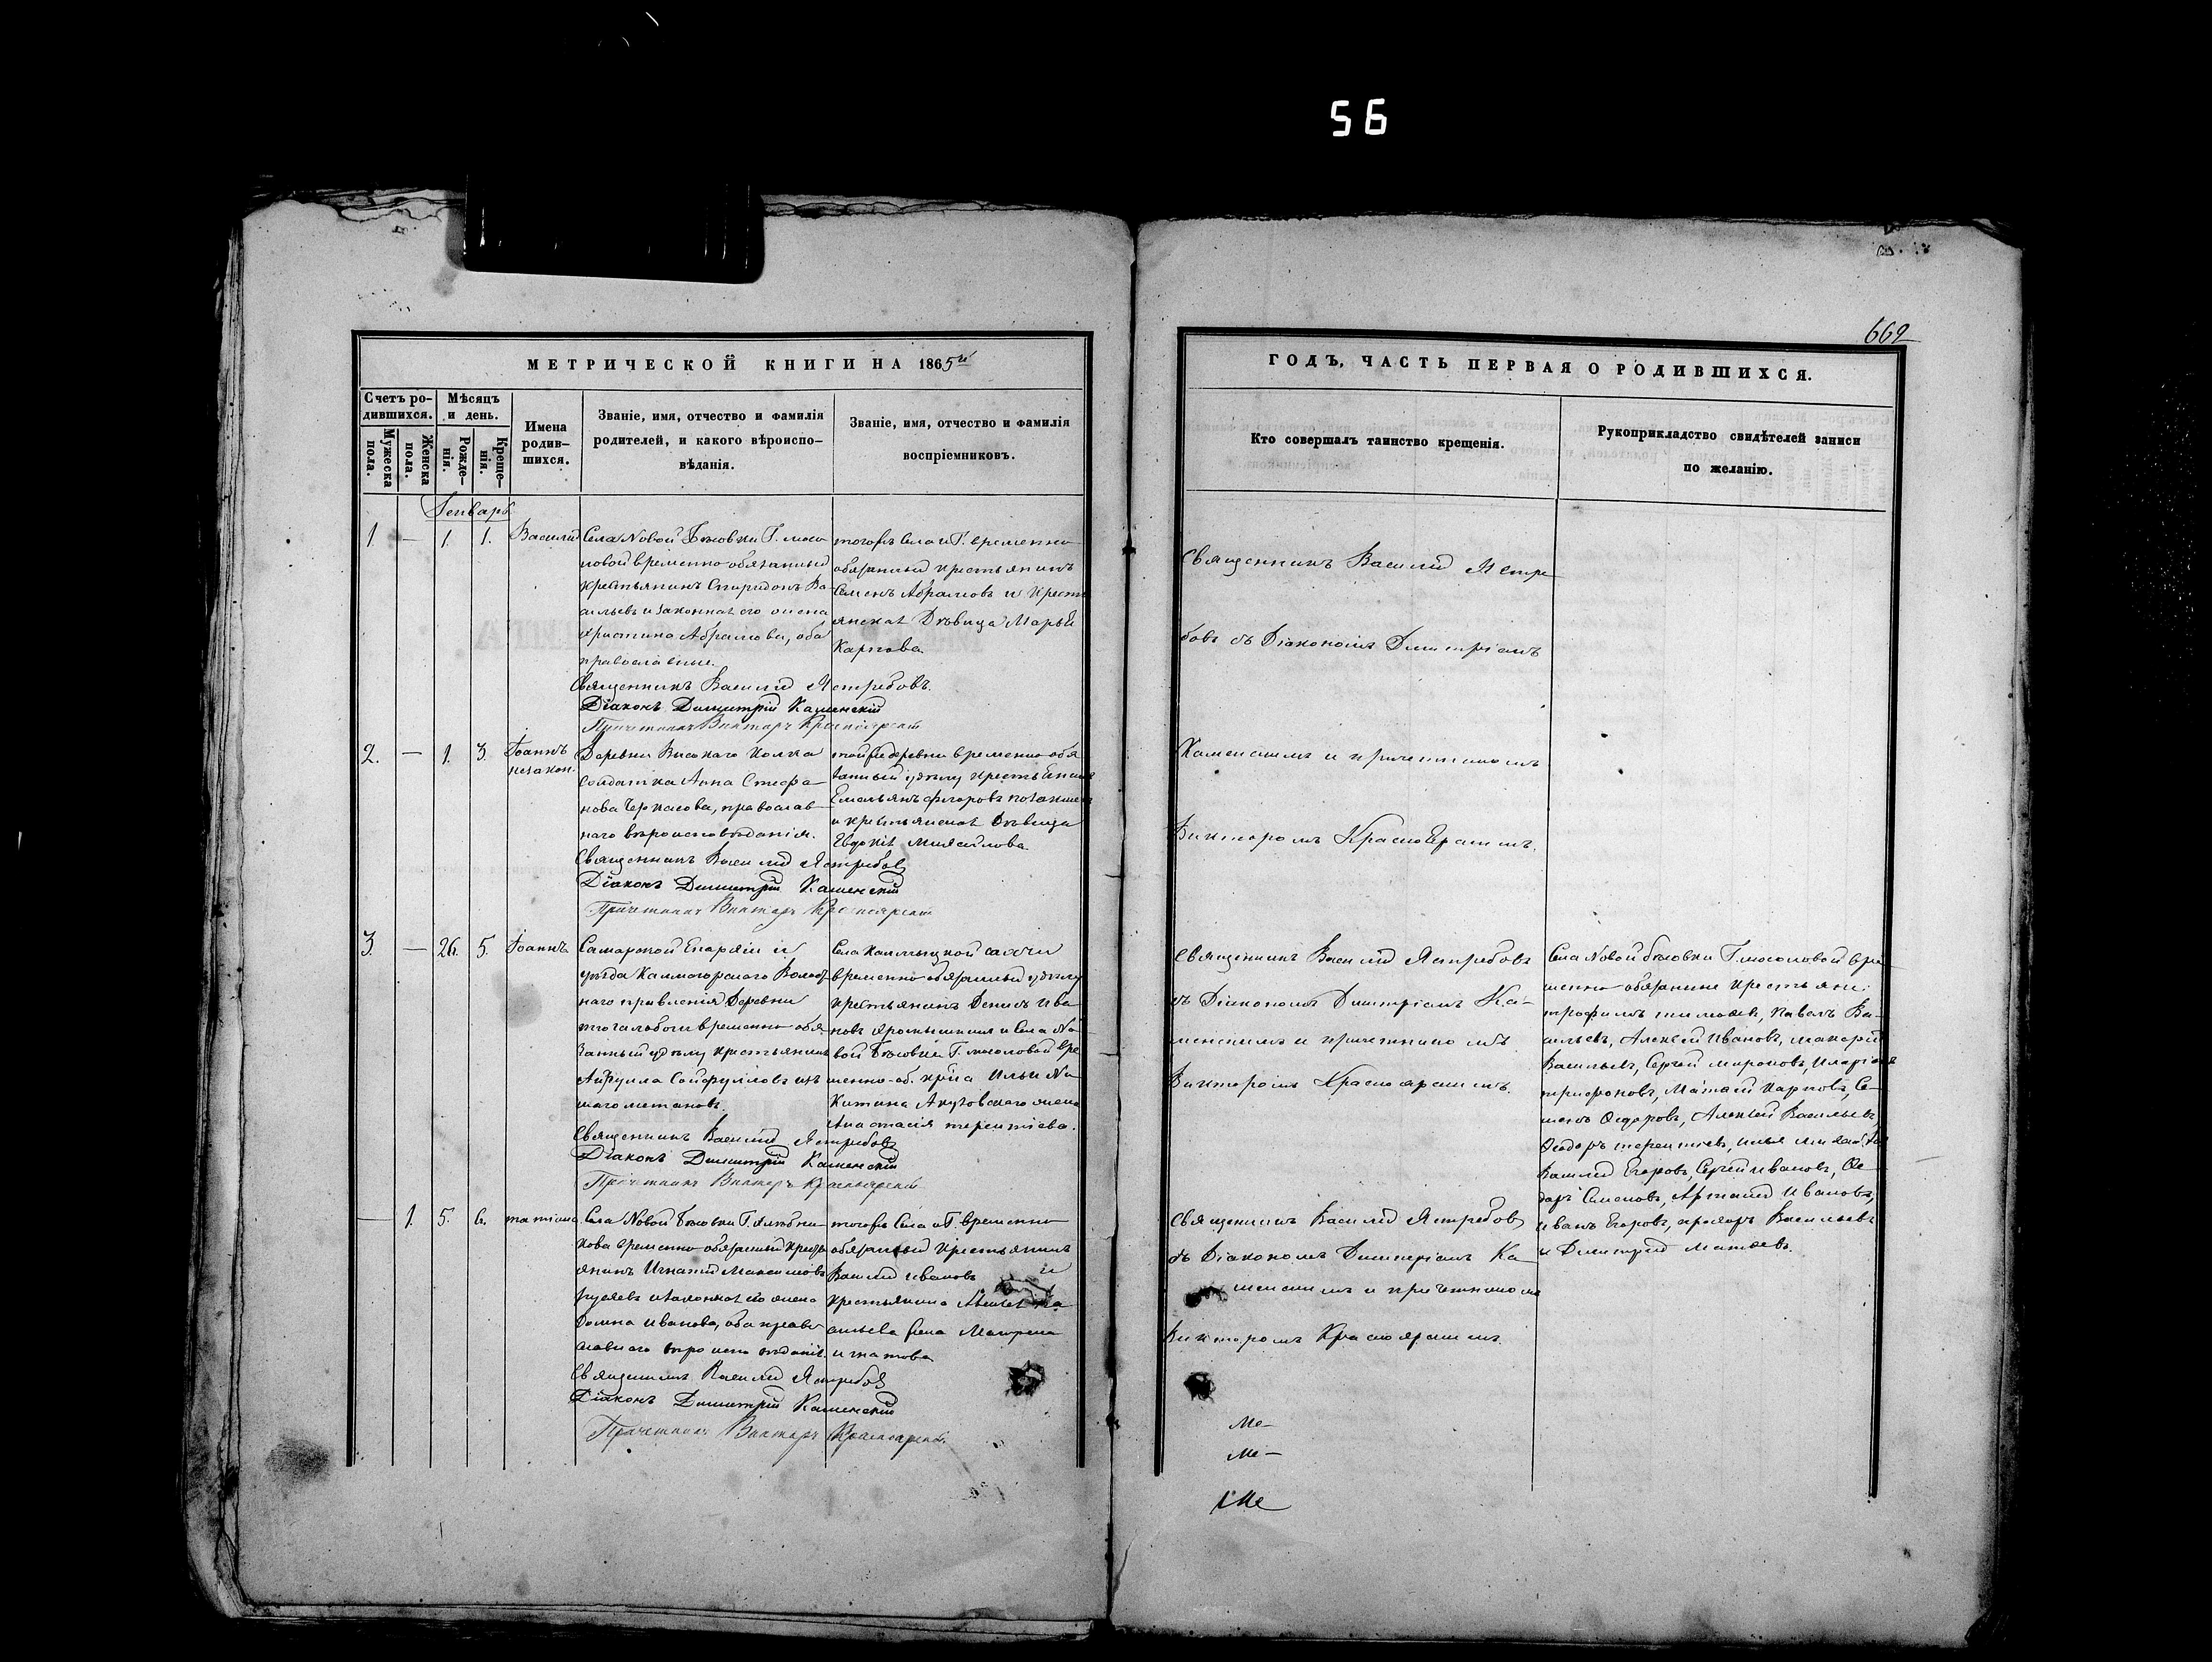 56
662
МЕТРИЧЕСКОЙ КНИГИ НА 1865й
ГОДЪ, ЧАСТЬ ПЕРВАЯ О РОДИВШИХСЯ.
Счетъ ро-
дившихся.
Мужеска
пола.
Женска
пола.
Мѣсяцъ
и день.
Рожде-
нія.
Креще-
нія.
Имена
родив-
шихся.
Званіе, имя, отчество и фамилія
родителей, и какого вѣроиспо-
вѣданія.
Званіе, имя, отчество и фамилія
воспріемниковъ.
Кто совершалъ таинство крещенія.
Рукоприкладство свидѣтелей записи
по желанію.
Генварь
1. — 1. 1. Василій
Села Новой Бѣковки Г. Мосо
ловой временно обязанный
крестьянинъ Спиридонъ Ва-
сильевъ и законная его жена
Христина Абрамова, оба
православные.
Священникъ Василій Ястребовъ.
Діаконъ Димитрій Каменскій
Причетникъ Викторъ Красноярскій
тогожъ Села и Г. временно
обязанный крестьянинъ
Семенъ Абрамовъ и крест
янская Дѣвица Марья
Карпова.
Священникъ Василій Ястре
бовъ съ Діакономъ Димитріемъ
Каменскимъ и причетникомъ
Викторомъ Красноярскимъ.
2. — 1. 3. Іоаннъ
незакон.
Деревни Высокаго Колка
солдатка Анна Стефа-
нова Черкасова, православ
наго вѣроисповѣданія.
Священникъ Василій Ястребовъ
Діаконъ Димитрій Каменскій
Причетникъ Викторъ Красноярскій
тойже деревни временно обя
занный удѣлу крестьянинъ
Емельянъ Флоровъ
и крестьянская Дѣвица
Евдокія Михайлова
3. — 26. 5. Іоаннъ
Самарской Епархіи и
уѣзда Волост
наго правленія Деревни
временно обя-
занный удѣлу крестьянинъ
Сайфулловъ изъ
магометановъ.
Священникъ Василій Ястребовъ
Діаконъ Димитрій Каменскій
Причетникъ Викторъ Красноярскій
Села Калмыцкой
временно-обязанный удѣлу
крестьянинъ Денисъ Ива
новъ и Села Но
вой Бѣковки Г. Мосоловой вре
менно-об. кр-на Ильи Ни
китина жена
Анастасія Терентіева.
Священникъ Василій Ястребовъ
съ Діакономъ Димитріемъ Ка-
менскимъ и причетникомъ
Викторомъ Красноярскимъ.
Села Новой Бѣковки Г. Мосоловой вре
менно-обязанные крестьяне:
Трофимъ Тимофеевъ, Павелъ Ва-
сильевъ, Алексей Ивановъ, Макарій
Васильевъ, Сергей Мироновъ, Иларіонъ
Трифоновъ, Матвей Карповъ, Се-
менъ Федоровъ, Алексей Васильевъ,
Феодоръ Терентіевъ, Илья
Василій Егоровъ, Сергей Ивановъ, Фе-
доръ Семеновъ, Артамій Ивановъ,
Иванъ Егоровъ, Васильевъ
и Димитрій Матвеевъ.
— 1. 5. 6. Татіана
Села Новой Бѣковки Г.
временно-обязанный кресть
янинъ Игнатій Максимовъ
и законная его жена
Домна Иванова, оба право
славнаго вѣроисповѣданія.
Священникъ Василій Ястребовъ
Діаконъ Димитрій Каменскій
Причетникъ Викторъ Красноярскій.
тогожъ Села и Г. временно
обязанный крестьянинъ
Василій Ивановъ и
крестьянина
жена Матрена
Игнатова
Священникъ Василій Ястребовъ
съ Діакономъ Димитріемъ Ка-
менскимъ и причетникомъ
Викторомъ Красноярскимъ.
Ме-
Ме-
Ме